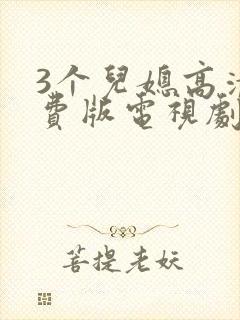 3个兒媳高
費版電視劇
菩提老妖